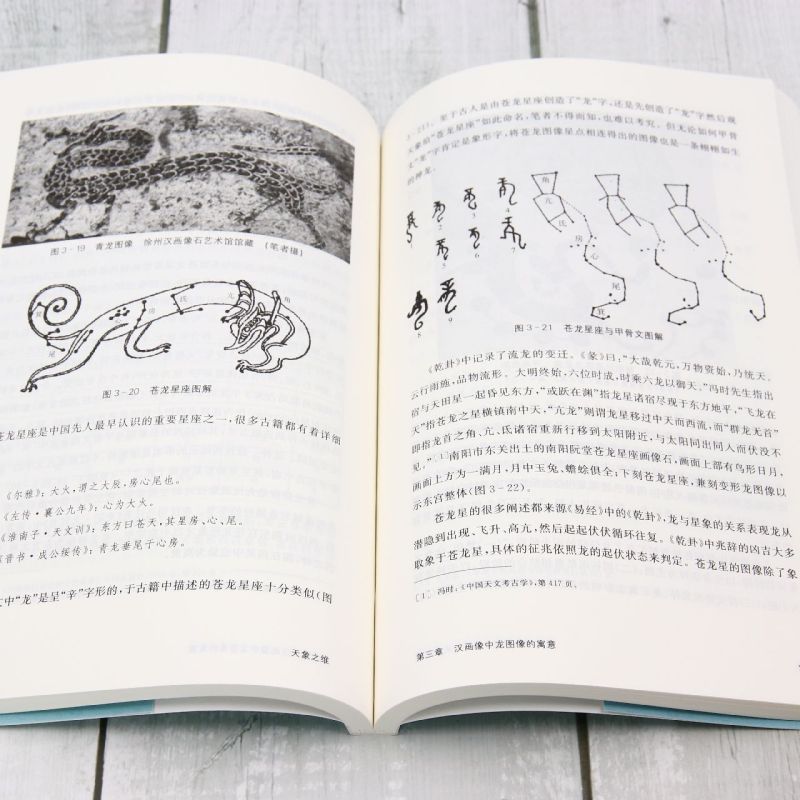 图3-19 青龙图像 徐州汉画像石艺术馆馆藏 (笔者摄)
箕
尾
房
氐
亢
角
图3-20 苍龙星座图解
苍龙星座是中国先人最早认识的重要星座之一，很多古籍都有着详细
《尔雅》：大火，谓之大辰；房心尾也。
《左传·襄公九年》：心为大火。
《淮南子·天文训》：东方曰苍天，其星房、心、尾。
《晋书·成公绥传》：青龙垂尾于心房。
文中“龙”是呈“辛”字形的，于古籍中描述的苍龙星座十分类似(图
天象之维
3-21)。至于古人是由苍龙星座创造了“龙”字，还是先创造了“龙”字然后观
天象给“苍龙星座”如此命名，笔者不得而知，也难以考究。但无论如何甲骨
文“龙”字肯定是象形字，将苍龙图像星点相连得出的图像也是一条栩栩如生
的神龙。
2
3
4
5
6
7
8
9
角
亢
氐
房
心
尾
箕
图3-21 苍龙星座与甲骨文图解
《乾卦》中记录了流龙的变迁。《彖》曰：“大哉乾元，万物资始，乃统天。
云行雨施，品物流形。大明终始，六位时成，时乘六龙以御天。”冯时先生指出
宿与天田星一起昏见东方，“或跃在渊”指龙星诸宿尽现于东方地平，“飞龙在
天”指苍龙之星横镇南中天，“亢龙”则谓龙星移过中天而西流，而“群龙无首”
即指龙首之角、亢、氐诸宿重新行移到太阳附近，与太阳同出同人而伏没不
见。”[1]南阳市东关出土的南阳阮堂苍龙星座画像石，画面上部有鸟形日月，
画面上方为一满月，月中玉兔、蟾蜍俱全；下刻苍龙星座，兼刻变形龙图像以
示东宫整体(图3-22)。
苍龙星的很多阐述都来源《易经》中的《乾卦》，龙与星象的关系表现龙从
潜隐到出现、飞升、高亢，然后起起伏伏循环往复。《乾卦》中兆辞的凶吉大多
取象于苍龙星，具体的征兆依照龙的起伏状态来判定。苍龙星的图像除了象
[1] 冯时：《中国天文考古学》，第417页。
第三章 汉画像中龙图像的寓意